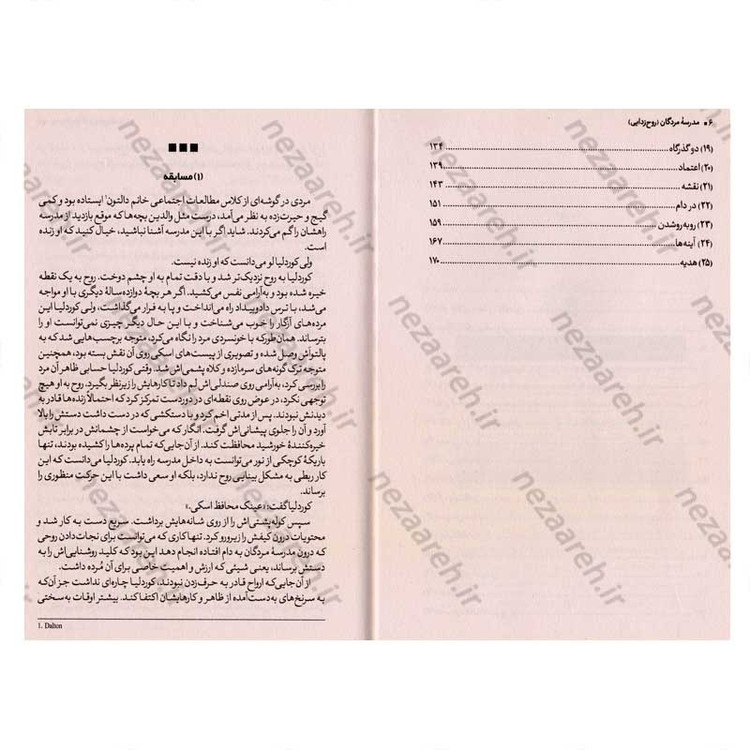 ۶ ■ مدرسهٔ مردگان (روح‌زدایی)
(۱۹) دو گذرگاه ........ ۱۳۴
(۲۰) اعتماد ........ ۱۳۹
(۲۱) نقشه ........ ۱۴۳
(۲۲) در دام ........ ۱۵۱
(۲۳) روبه‌روشدن ........ ۱۵۹
(۲۴) آینه‌ها ........ ۱۶۷
(۲۵) هدیه ........ ۱۷۰
(۱) مسابقه
مردی در گوشه‌ای از کلاس مطالعات اجتماعی خانم دالتون¹ ایستاده بود و کمی
گیج و حیرت‌زده به نظر می‌آمد، درست مثل والدین بچه‌ها که موقع بازدید از مدرسه
راهشان را گم می‌کردند. شاید اگر با این مدرسه آشنا نباشید، خیال کنید که او زنده
است.
ولی کوردلیا لو می‌دانست که او زنده نیست.
کوردلیا به روح نزدیک‌تر شد و با دقت تمام به او چشم دوخت. روح به یک نقطه
خیره شده بود و به‌آرامی نفس می‌کشید. اگر هر بچهٔ دوازده‌سالهٔ دیگری با او مواجه
می‌شد، با ترس دادوبیداد راه می‌انداخت و پا به فرار می‌گذاشت، ولی کوردلیا این
مرده‌های آزگار را خوب می‌شناخت و با این حال دیگر چیزی نمی‌توانست او را
بترساند. همان طور که با خونسردی مرد را نگاه می‌کرد، متوجه برچسب‌هایی شد که به
پالتواش وصل شده و تصویری از پیست‌های اسکی روی آن نقش بسته بود، همچنین
متوجه ترک گونه‌های سرمازده و کلاه پشمی‌اش شد. وقتی کوردلیا حسابی ظاهر آن مرد
را بررسی کرد، به‌آرامی روی صندلی‌اش لم داد تا کارهایش را زیر نظر بگیرد. روح به او هیچ
توجهی نکرد، در عوض روی نقطه‌ای در دوردست تمرکز کرد که احتمالاً زنده‌ها قادر به
دیدنش نبودند. پس از مدتی اخم کرد و با دستکشی که در دست داشت دستش را بالا
آورد و آن را جلوی پیشانی‌اش گرفت. انگار که می‌خواست از چشمانش در برابر تابش
خیره‌کنندهٔ خورشید محافظت کند. از آن جایی‌که تمام پرده‌ها را کشیده بودند، تنها
باریکهٔ کوچکی از نور می‌توانست به داخل مدرسه راه یابد. کوردلیا می‌دانست که این
کار ربطی به مشکل بینایی روح ندارد، بلکه او سعی داشت با این حرکت منظوری را
برساند.
کوردلیا گفت: «عینک محافظ اسکی.»
سپس کوله‌پشتی‌اش را از روی شانه‌هایش برداشت. سریع دست به کار شد و
محتویات درون کیفش را زیرورو کرد. تنها کاری که می‌توانست برای نجات‌دادن روحی
که درون مدرسهٔ مردگان به دام افتاده انجام دهد این بود که کلید روشنایی‌اش را به
دستش برساند، یعنی شیئی که ارزش و اهمیت خاصی برای آن مُرده داشت.
از آن جایی‌که ارواح قادر به حرف‌زدن نبودند، کوردلیا چاره‌ای نداشت جز آن‌که
به سرنخ‌های به‌دست‌آمده از ظاهر و کارهایشان اکتفا کند. بیشتر اوقات به‌سختی
1. Dalton
nezaareh.ir